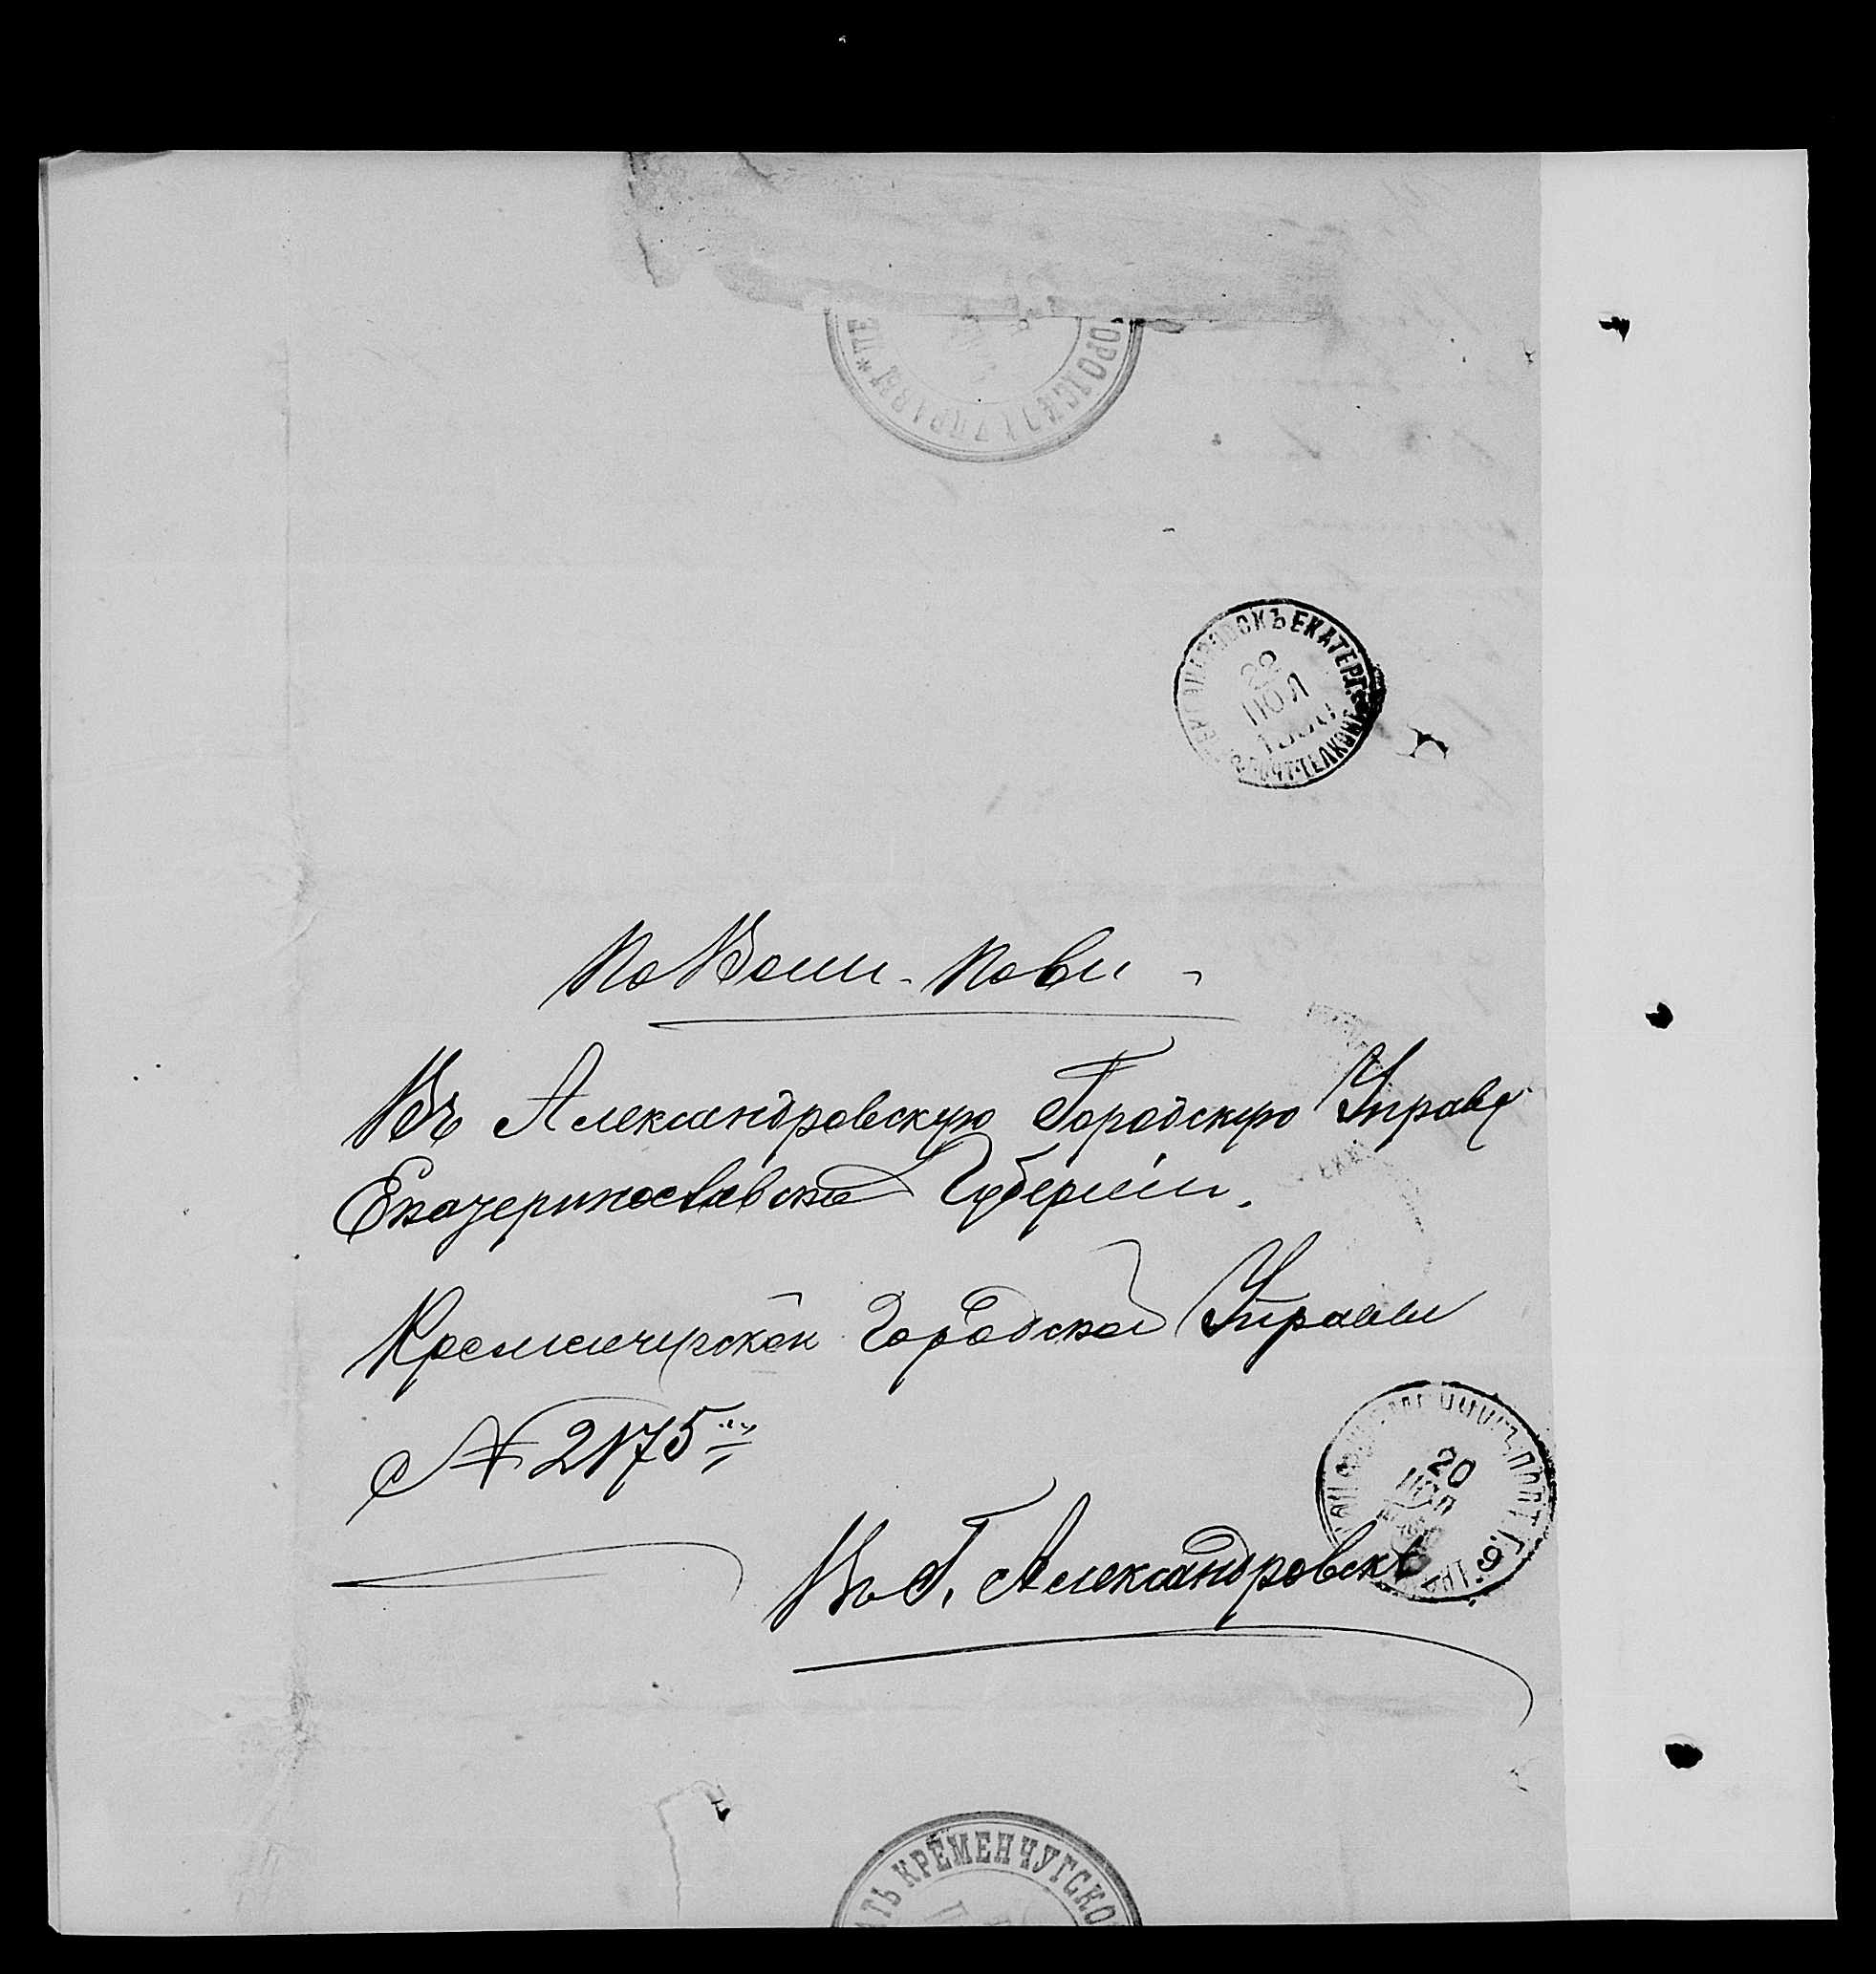 *ПЕ ОРОДСКОЙ УПРАВЫ*
АЛЕКСАНДРОВСКЪ ЕКАТЕР. Г.
22
ІЮЛ
ПОЧТ. ТЕЛ. КОНТ.
По Воин. Пов.
Въ Александровскую Городскую Управу
Екатеринославской Губерніи.
Кременчугской Городской Управы
№ 2175
20
ІЮЛ
Въ Г. Александровскъ
АТЬ КРЕМЕНЧУГСКО